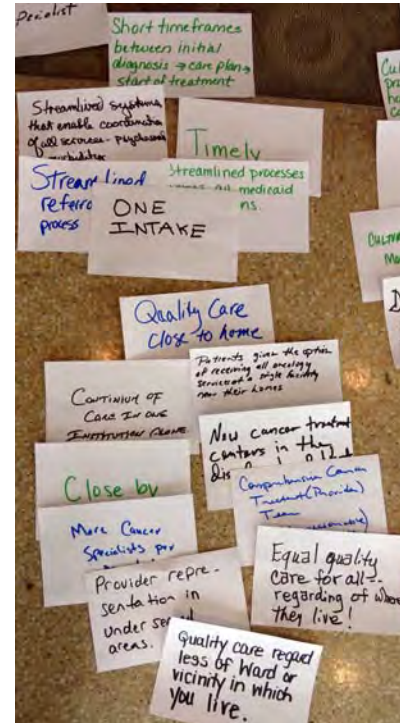 Short timeframes
between initial
diagnosis → care plan →
start of treatment
Streamlined systems
that enable coordination
of all services - psychosocial
Timely
Streamlined processes
medicaid
Streamlined
process
ONE
INTAKE
Quality Care
close to home
Patients given the option
of receiving all oncology
services at a single facility
near their homes
CONTINIUM OF
CARE IN ONE
INSTITUTION
New cancer treatment
centers in the
Close by
Comprehensive Cancer
Treatment (Provider)
Team
More Cancer
Specialists per
Provider repre-
sentation in
under served
areas.
Equal quality
care for all -
regarding of where
they live!
Quality care regard
less of Ward or
vicinity in which
you live.